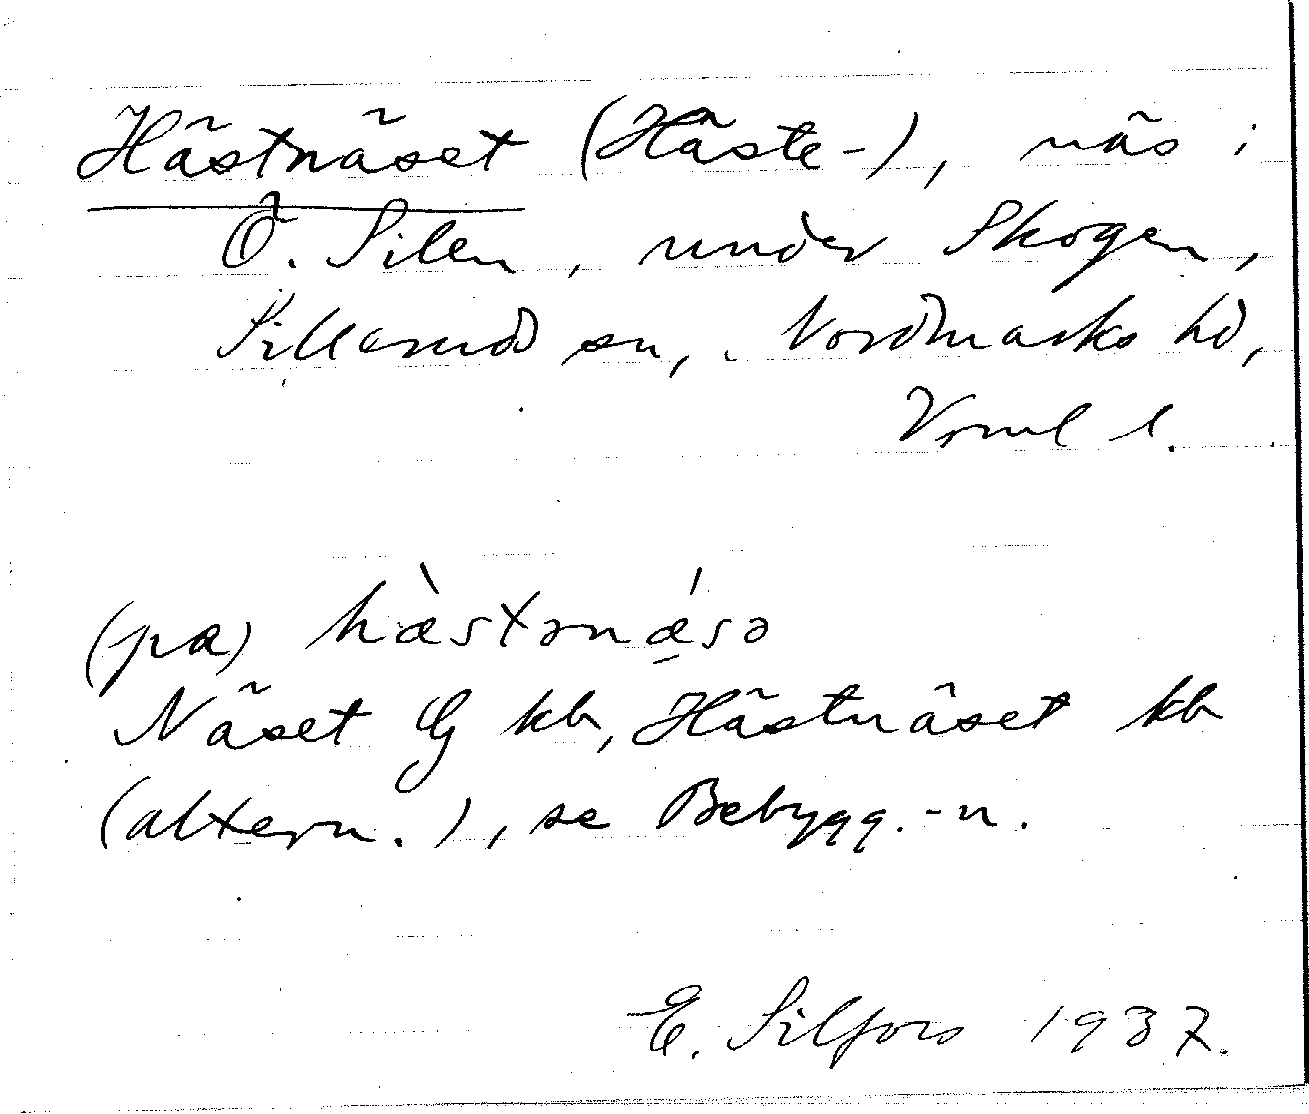 Hästnäset (Häste-), näs i
Ö. Silen, under Skogen,
Sillerud sn, Nordmarks hd,
Vrml l.
(pa) hæ̀stənǽsə
Näset G kb, Hästnäset kb
(altern.), se Bebygg.-n.
E. Silfors 1937.